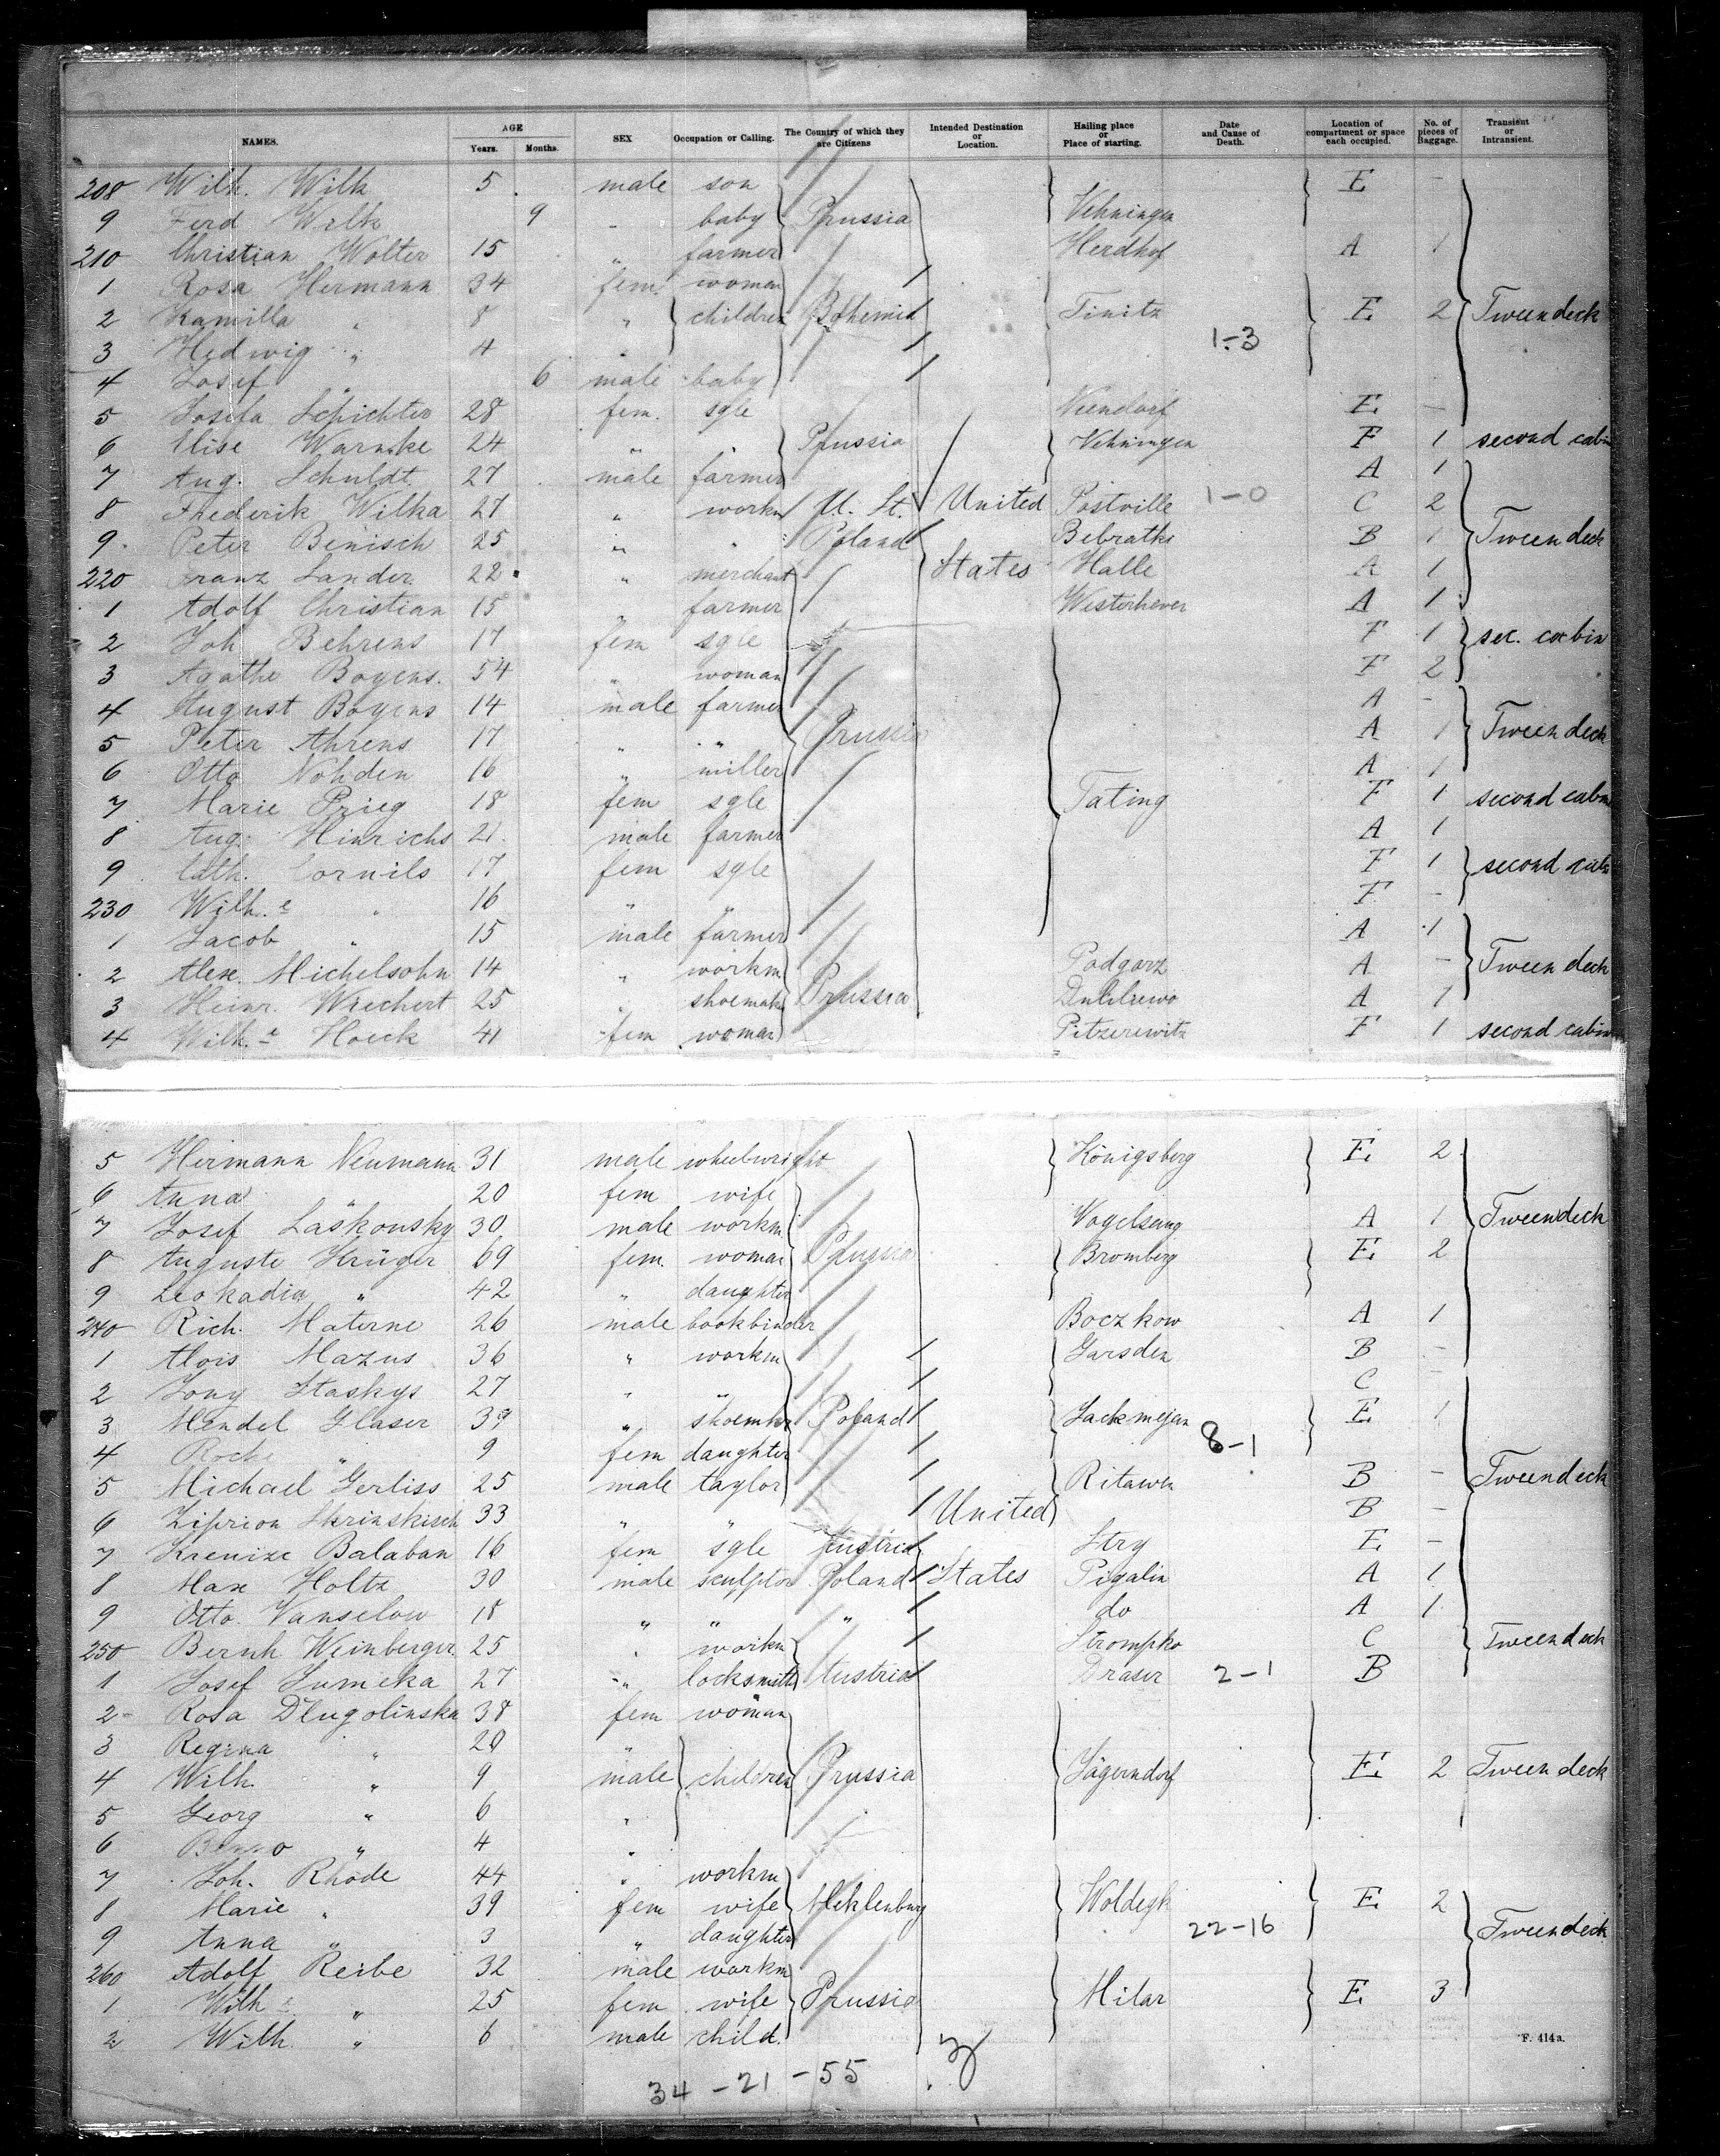 NAMES. AGE Years. Months. SEX Occupation or Calling. The Country of which they are Citizens Intended Destination or Location. Hailing place or Place of starting. Date and Cause of Death. Location of compartment or space each occupied. No. of pieces of Baggage. Transient or Intransient.
208 Wilh. Wilk 5 male son E -
9 Ferd Wilk 9 " baby Prussia Vehningen
210 Christian Wolter 15 " farmer Herdhof A 1
1 Rosa Hermann 34 fem. woman
2 Kamilla " 8 " children Bohemia Tinitz E 2 Tweendeck
3 Hedwig " 4 " 1-3
4 Josef " 6 male baby
5 Josefa 28 fem. sgle Niendorf E -
6 Elise Warnke 24 " " Prussia Vehningen F 1 second cabin
7 Aug. Schuldt 27 male farmer A 1
8 Frederik Wilka 27 " workm U. St. United Postville 1-0 C 2
9 Peter Benisch 25 " " Poland Bebrathe B 1 Tweendeck
220 Franz Sander 22 " merchant States Halle A 1
1 Adolf Christian 15 " farmer Westerhever A 1
2 Joh Behrens 17 fem sgle F 1 sec. cabin
3 Agathe Boyens. 54 " woman F 2
4 August Boyens 14 male farmer A -
5 Peter Ahrens 17 " " Prussia A 1 Tweendeck
6 Otto Nohden 16 " miller A 1
7 Marie Prieg 18 fem sgle Tating F 1 second cabin
8 Aug. Hinrichs 21 male farmer A 1
9 Cath. Cornils 17 fem sgle F 1 second cabin
230 Wilh.e " 16 " " F -
1 Jacob " 15 male farmer A 1
2 Alex. Michelsohn 14 " workm Podgorz A - Tween deck
3 Heinr. Wiechert 25 " shoemaker Prussia A 1
4 Wilh.e Hoeck 41 fem woman Pitzerewitz F 1 second cabin
5 Hermann Neumann 31 male wheelwright Königsberg E 2
6 Anna " 20 fem wife
7 Josef Laskousky 30 male workm Vogelsang A 1 Tweendeck
8 Auguste Krüger 69 fem. woman Prussia Bromberg E 2
9 Leokadia " 42 " daughter
240 Rich. Materne 26 male bookbinder Boczkow A 1
1 Alois Mazus 36 " workm Garsden B -
2 Jony Staskys 27 " " C -
3 Mendel Glaser 39 " shoemker Poland Jackmejan E 1
4 " 9 fem daughter 8-1
5 Michael Gerliss 25 male taylor Ritawen B - Tweendeck
6 Ziprion Skrinskisch 33 " " United B -
7 Krenize Balaban 16 fem sgle Austria Stry E -
8 Max Holtz 30 male sculptor Poland States Pigalin A 1
9 Otto Vanselow 18 " " " do A 1
250 Bernh Weinberger 25 " workm Strompko C Tweendeck
1 Josef Sumeka 27 " locksmith Austria Draser 2-1 B
2 Rosa Dlugolinska 38 fem woman
3 Regina " 20 "
4 Wilh. " 9 male children Prussia Jägerndorf E 2 Tween deck
5 Georg " 6 "
6 " 4 "
7 Joh. Rhode 44 " workm
8 Marie " 39 fem wife Meklenburg Woldegk E 2
9 Anna " 3 " daughter 22-16 Tweendeck
260 Adolf Reibe 32 male workm
1 Wilh e " 25 fem wife Prussia Milar E 3
2 Wilh. " 6 male child.
F. 414a.
34-21-55